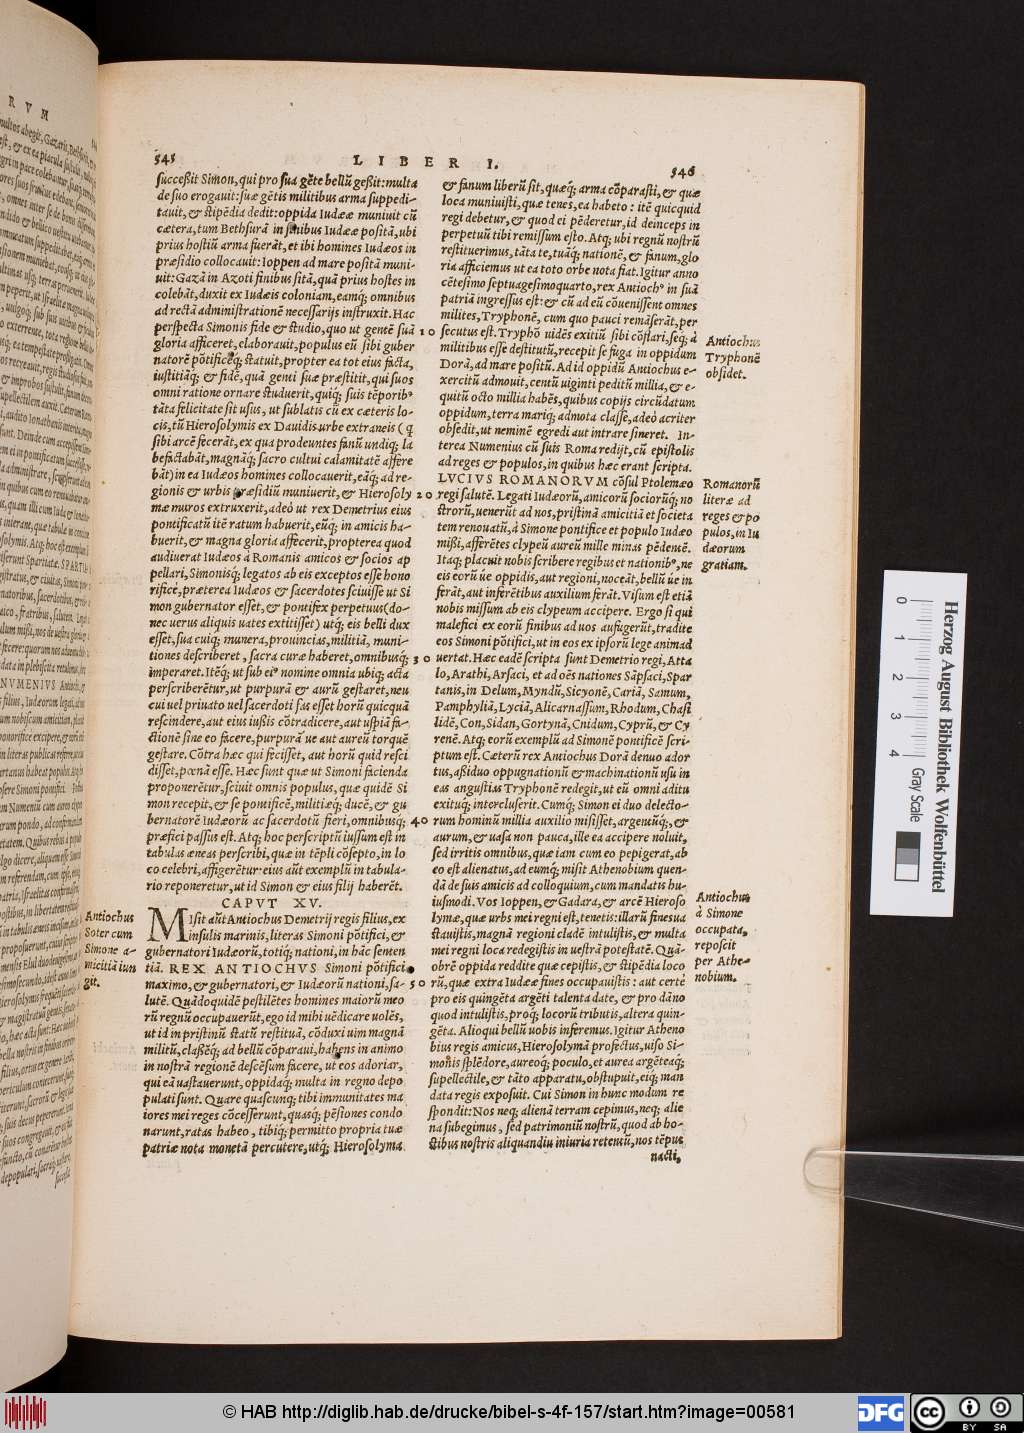 545
LIBER I.
546
succeßit Simon, qui pro sua gẽte bellũ geßit: multa
de suo erogauit: suæ gẽtis militibus arma suppedi-
tauit, & stipẽdia dedit: oppida Iudææ muniuit cũ
cætera, tum Bethsurã in finibus Iudææ positã, ubi
prius hostiũ arma fuerãt, et ibi homines Iudæos in
præsidio collocauit: Ioppen ad mare positã muni-
uit: Gazã in Azoti finibus sitã, quã prius hostes in
colebãt, duxit ex Iudæis coloniam, eamq́; omnibus
ad rectã administrationẽ necessarijs instruxit. Hac
perspecta Simonis fide & studio, quo ut gentẽ suã
gloria afficeret, elaborauit, populus eũ sibi guber
natorẽ põtificẽq́; statuit, propter ea tot eius facta,
iustitiãq́; & fidẽ, quã genti suæ præstitit, qui suos
omni ratione ornare studuerit, quiq́; suis tẽporibꝰ
tãta felicitate sit usus, ut sublatis cũ ex cæteris lo-
cis, tũ Hierosolymis ex Dauidis urbe extraneis (q
sibi arcẽ fecerãt, ex qua prodeuntes fanũ undiq; la
befactabãt, magnãq́; sacro cultui calamitatẽ affere
bãt) in ea Iudæos homines collocauerit, eãq́; ad re-
gionis & urbis præsidiũ muniuerit, & Hierosoly
mæ muros extruxerit, adeò ut rex Demetrius eius
pontificatũ itẽ ratum habuerit, eũq́; in amicis ha-
buerit, & magna gloria affecerit, propterea quod
audiuerat Iudæos à Romanis amicos & socios ap
pellari, Simonisq́; legatos ab eis exceptos esse hono
rificè, præterea Iudæos & sacerdotes sciuisse ut Si
mon gubernator esset, & pontifex perpetuus (do-
nec uerus aliquis uates extitisset) utq́; eis belli dux
esset, sua cuiq́; munera, prouincias, militiã, muni-
tiones describeret, sacra curæ haberet, omnibusq́;
imperaret. Itẽq́; ut sub eiꝰ nomine omnia ubiq; acta
perscriberẽtur, ut purpurã & aurũ gestaret, neu
cui uel priuato uel sacerdoti fas esset horũ quicquã
rescindere, aut eius iußis cõtradicere, aut uspiã fa-
ctionẽ sine eo facere, purpurã ue aut aureũ torquẽ
gestare. Cõtra hæc qui fecisset, aut horũ quid resci
disset, pœnã esse. Hæc sunt quæ ut Simoni facienda
proponerẽtur, sciuit omnis populus, quæ quidẽ Si
mon recepit, & se pontificẽ, militiæq́; ducẽ, & gu
bernatorẽ Iudæorũ ac sacerdotũ fieri, omnibusq́;
præfici passus est. Atq; hoc perscriptũ iussum est in
tabulas æneas perscribi, quæ in tẽpli cõsepto, in lo
co celebri, affigerẽtur: eius aũt exemplũ in tabula-
rio reponeretur, ut id Simon & eius filij haberẽt.
CAPVT XV.
Antiochus
Soter cum
Simone a-
micitiã iun
git.
MIsit aũt Antiochus Demetrij regis filius, ex
insulis marinis, literas Simoni põtifici, &
gubernatori Iudæorũ, totiq́; nationi, in hãc senten
tiã. REX ANTIOCHVS Simoni põtifici
maximo, & gubernatori, & Iudæorũ nationi, sa-
lutẽ. Quãdoquidẽ pestilẽtes homines maiorũ meo
rũ regnũ occupauerũt, ego id mihi uẽdicare uolẽs,
ut id in pristinũ statũ restituã, cõduxi uim magnã
militũ, claßẽq́; ad bellũ cõparaui, habens in animo
in nostrã regionẽ descẽsum facere, ut eos adoriar,
qui eã uastauerunt, oppidaq́; multa in regno depo
pulati sunt. Quare quascunq; tibi immunitates ma
iores mei reges cõcesserunt, quasq́; pẽsiones condo
narunt, ratas habeo, tibiq́; permitto propria tuæ
patriæ nota monetã percutere, utq́; Hierosolyma
10
20
30
40
50
& fanum liberũ sit, quæq́; arma cõparasti, & quæ
loca muniuisti, quæ tenes, ea habeto: itẽ quicquid
regi debetur, & quod ei pẽderetur, id deinceps in
perpetuũ tibi remissum esto. Atq; ubi regnũ nostrũ
restituerimus, tãta te, tuãq́; nationẽ, & fanum, glo
ria afficiemus ut ea toto orbe nota fiat. Igitur anno
cẽtesimo septuagesimoquarto, rex Antiochꝰ in suã
patriã ingressus est: & cũ ad eũ cõuenissent omnes
milites, Tryphonẽ, cum quo pauci remãserãt, per
secutus est. Tryphõ uidẽs exitiũ sibi cõflari, seq́; à
militibus esse destitutũ, recepit se fuga in oppidum
Dorã, ad mare positũ. Ad id oppidũ Antiochus e-
xercitũ admouit, centũ uiginti peditũ millia, & e-
quitũ octo millia habẽs, quibus copijs circũdatum
oppidum, terra mariq́; admota classe, adeò acriter
obsedit, ut neminẽ egredi aut intrare sineret. In-
terea Numenius cũ suis Roma redijt, cũ epistolis
ad reges & populos, in quibus hæc erant scripta.
LVCIVS ROMANORVM cõsul Ptolemæo
regi salutẽ. Legati Iudæorũ, amicorũ sociorũq́; no
strorũ, uenerũt ad nos, pristinã amicitiã et societa
tem renouatũ, à Simone pontifice et populo Iudæo
mißi, afferẽtes clypeũ aureũ mille minas pẽdentẽ.
Itaq; placuit nobis scribere regibus et nationibꝰ, ne
eis eorũ ue oppidis, aut regioni, noceãt, bellũ ue in
ferãt, aut inferẽtibus auxilium ferãt. Visum est etiã
nobis missum ab eis clypeum accipere. Ergo si qui
malefici ex eorũ finibus ad uos aufugerũt, tradite
eos Simoni põtifici, ut in eos ex ipsorũ lege animad
uertat. Hæc eadẽ scripta sunt Demetrio regi, Atta
lo, Arathi, Arsaci, et ad oẽs nationes Sãpsaci, Spar
tanis, in Delum, Myndũ, Sicyonẽ, Cariã, Samum,
Pamphyliã, Lyciã, Alicarnassum, Rhodum, Phasi
lidẽ, Con, Sidan, Gortynã, Cnidum, Cyprũ, & Cy
renẽ. Atq; eorũ exemplũ ad Simonẽ pontificẽ scri-
ptum est. Cæterũ rex Antiochus Dorã denuo ador
tus, aßiduo oppugnationũ & machinationũ usu in
eas angustias Tryphonẽ redegit, ut eũ omni aditu
exituq́; intercluserit. Cumq́; Simon ei duo delecto-
rum hominũ millia auxilio misisset, argentũq́;, &
aurum, & uasa non pauca, ille ea accipere noluit,
sed irritis omnibus, quæ iam cum eo pepigerat, ab
eo est alienatus, ad eumq́; misit Athenobium quen-
dã de suis amicis ad colloquium, cum mandatis hu
iusmodi. Vos Ioppen, & Gadara, & arcẽ Hieroso
lymæ, quæ urbs mei regni est, tenetis: illarũ fines ua
stauistis, magnã regioni cladẽ intulistis, & multa
mei regni loca redegistis in uestrã potestatẽ. Quã-
obrẽ oppida reddite quæ cepistis, & stipẽdia loco
rũ, quæ extra Iudææ fines occupauistis: aut certẽ
pro eis quingẽta argẽti talenta date, & pro dãno
quod intulistis, proq́; locorũ tributis, altera quin-
gẽta. Alioqui bellũ uobis inferemus. Igitur Atheno
bius regis amicus, Hierosolymã profectus, uiso Si-
monis splẽdore, aureoq́; poculo, et aurea argẽteaq́;
supellectile, & tãto apparatu, obstupuit, eiq́; man
data regis exposuit. Cui Simon in hunc modum re
spondit: Nos neq; alienã terram cepimus, neq; alie
na subegimus, sed patrimoniũ nostrũ, quod ab ho-
stibus nostris aliquandiu iniuria retentũ, nos tẽpus
nacti,
Antiochus
Tryphonẽ
obsidet.
Romanorũ
literæ ad
reges & po
pulos, in Iu
dæorum
gratiam.
Antiochus
à Simone
occupata,
reposcit
per Athe-
nobium.
0 1 2 3 4
Gray Scale
Herzog August Bibliothek Wolfenbüttel
© HAB http://diglib.hab.de/drucke/bibel-s-4f-157/start.htm?image=00581
DFG
cc BY SA